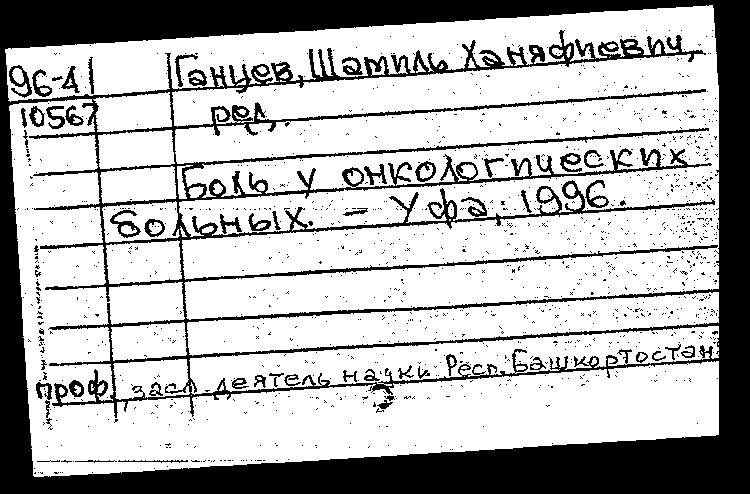 96-4 Ганцев, Шамиль Ханяфиевич,
10567 ред.
Боль у онкологических
больных. - Уфа, 1996.
проф., засл. деятель науки Респ. Башкортостан